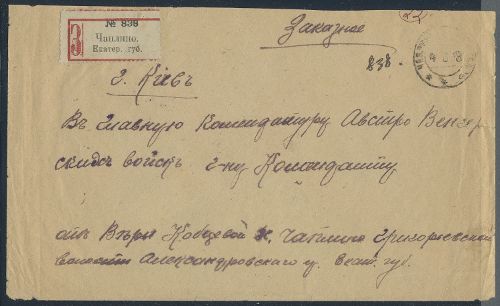 № 838
З
Чаплино.
Екатер. губ.
Заказное
838.
г. Кіевъ
Въ Главную Комендатуру Австро Венгер
скихъ войскъ г-ну Коменданту
отъ Вѣры Кобцевой с. Чаплино Григорьевской
волости Александровскаго у. Екат. губ.